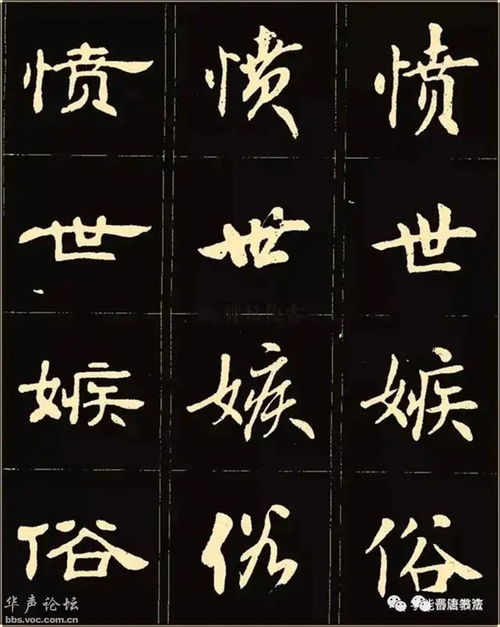 愤世嫉俗
愤世嫉俗
愤世嫉俗
华声论坛
bbs.voc.com.cn